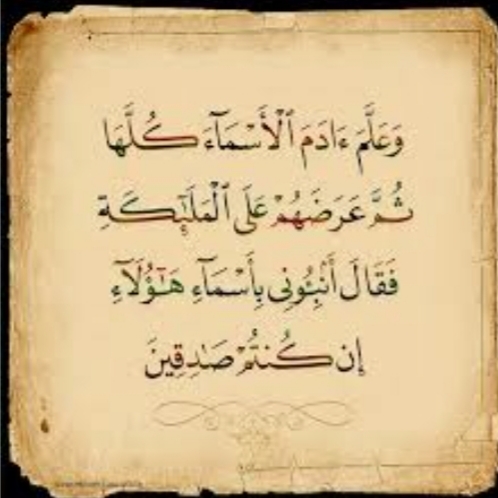 وَعَلَّمَ ءَادَمَ ٱلْأَسْمَآءَ كُلَّهَا
ثُمَّ عَرَضَهُمْ عَلَى ٱلْمَلَٰٓئِكَةِ
فَقَالَ أَنۢبِـُٔونِى بِأَسْمَآءِ هَٰٓؤُلَآءِ
إِن كُنتُمْ صَٰدِقِينَ